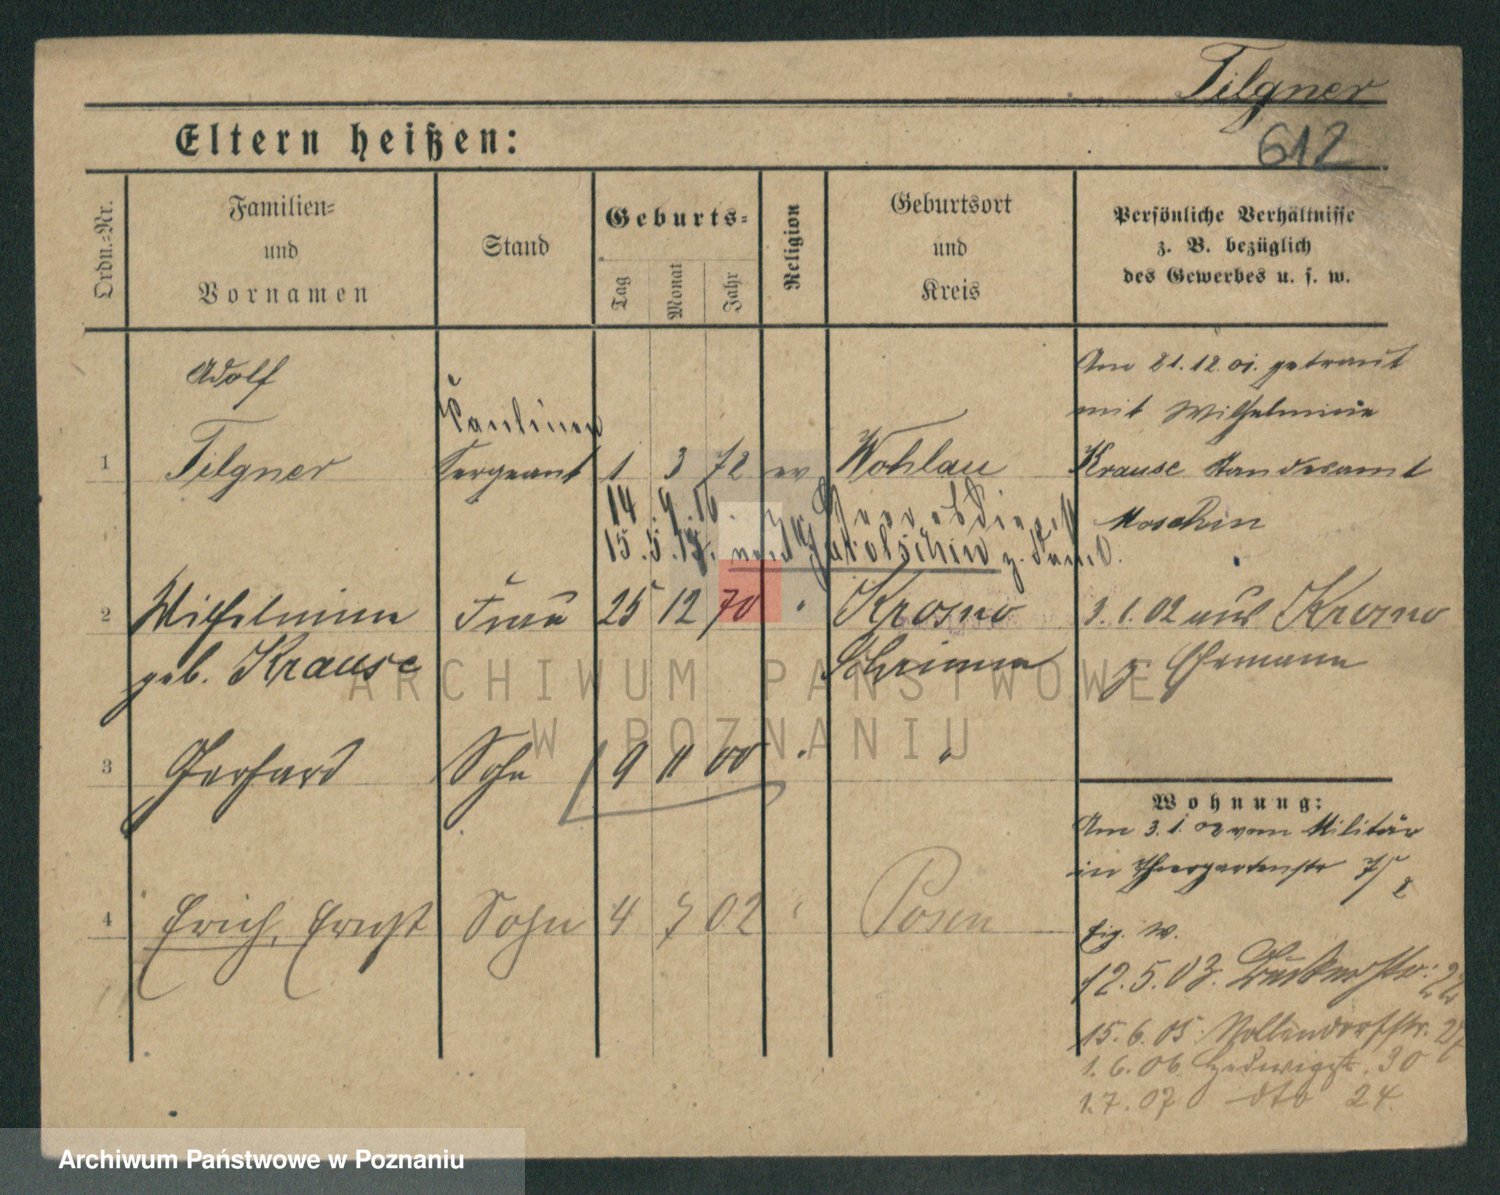 Tilgner
Eltern heißen:
612
Ordn.=Nr.
Familien=
und
Vornamen
Stand
Geburts=
Tag
Monat
Jahr
Religion
Geburtsort
und
Kreis
Persönliche Verhältnisse
z. B. bezüglich
des Gewerbes u. s. w.
Adolf
1 Tilgner Sergeant 1 3 72 ev Wohlau
Am 21.12.01. getraut
mit Wilhelmine
Krause Standesamt
Moschin
14.9.16.
15.5.17. nach z.
2 Wilhelmine Frau 25 12 70 " Krosno
geb. Krause Schrimm
3.1.02 aus Krosno
z. Ehemann
3 Gerhard Sohn 9 11 00 " "
4 Erich, Ernst Sohn 4 7 02 " Posen
Wohnung:
Am 3.1.02 vom Militär
in Thiergartenstr 7/
Eig. W.
12.5.03. 22
15.6.05 Nollendorfstr. 27
1.6.06. Hedwigstr. 30
1.7.07 dto 24.
ARCHIWUM PAŃSTWOWE
W POZNANIU
Archiwum Państwowe w Poznaniu